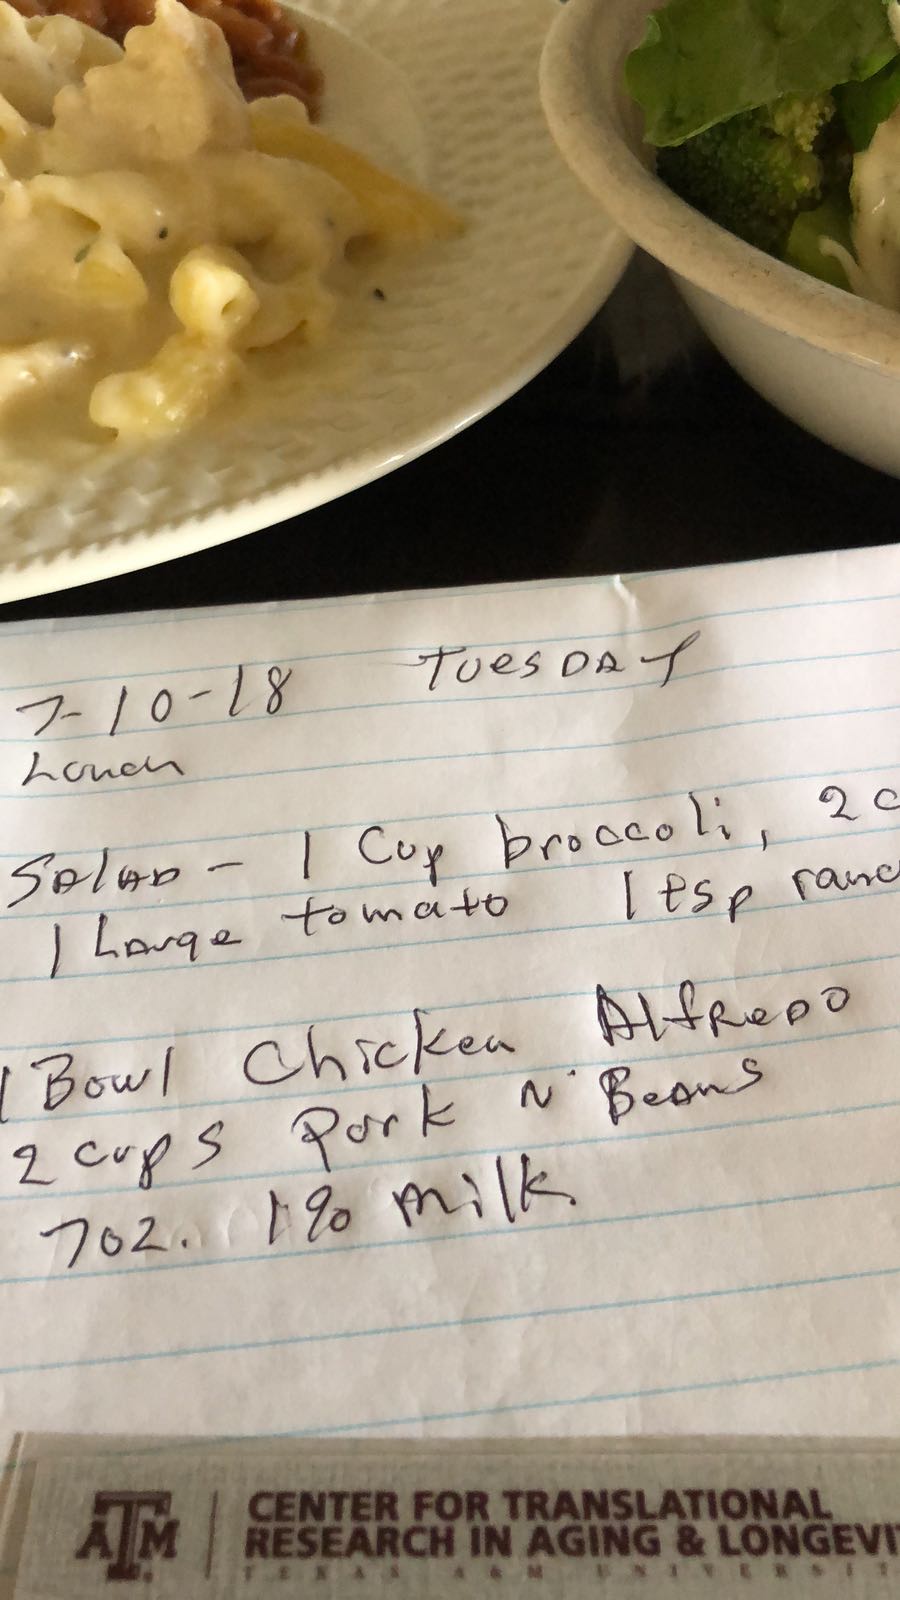 7-10-18 TUESDAY
Lunch
SALAD - 1 Cup broccoli, 2 c
1 Large tomato 1 tsp ranc
1 Bowl Chicken Alfredo
2 cups Pork N' Beans
7oz. 1% milk
ATM
CENTER FOR TRANSLATIONAL
RESEARCH IN AGING & LONGEVI
TEXAS A&M UNIVERSIT